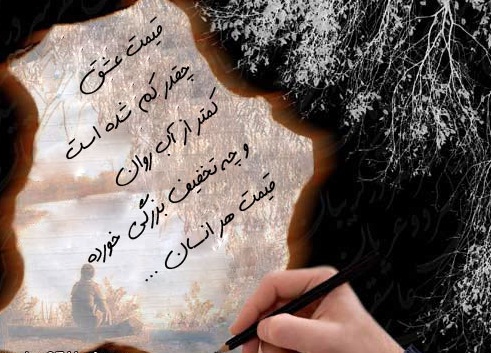 قیمت عشق
چقدر کم شده است
کمتر از آب روان
و چه تخفیف بزرگی خورده
قیمت هر انسان ...